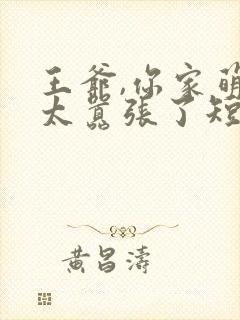 王爺,你家萌
太囂張了短
黃昌濤